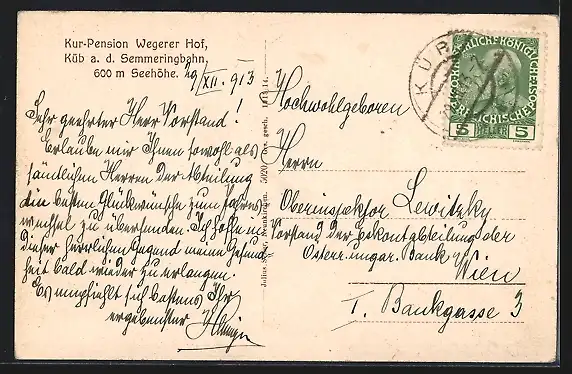 Kur-Pension Wegerer Hof,
Küb a. d. Semmeringbahn,
600 m Seehöhe.
29/XII. 913
Sehr geehrter Herr Vorstand!
Erlaube mir Ihnen sowohl als
sämtlichen Herren der Abteilung
die besten Glückwünsche zum Jahres
wechsel zu übersenden. Ich hoffe in
dieser herrlichen Gegend meine Gesund
heit bald wieder zu erlangen.
Es empfiehlt sich bestens Ihr
ergebenster
Hochwohlgeboren
Herrn
Oberinspektor Lewitzky
Vorstand der Eskontabteilung der
Österr. ungar. Bank
Wien
I. Bankgasse 3
KÜB
5 HELLER 5
1913.14.
5920 Ges. gesch.